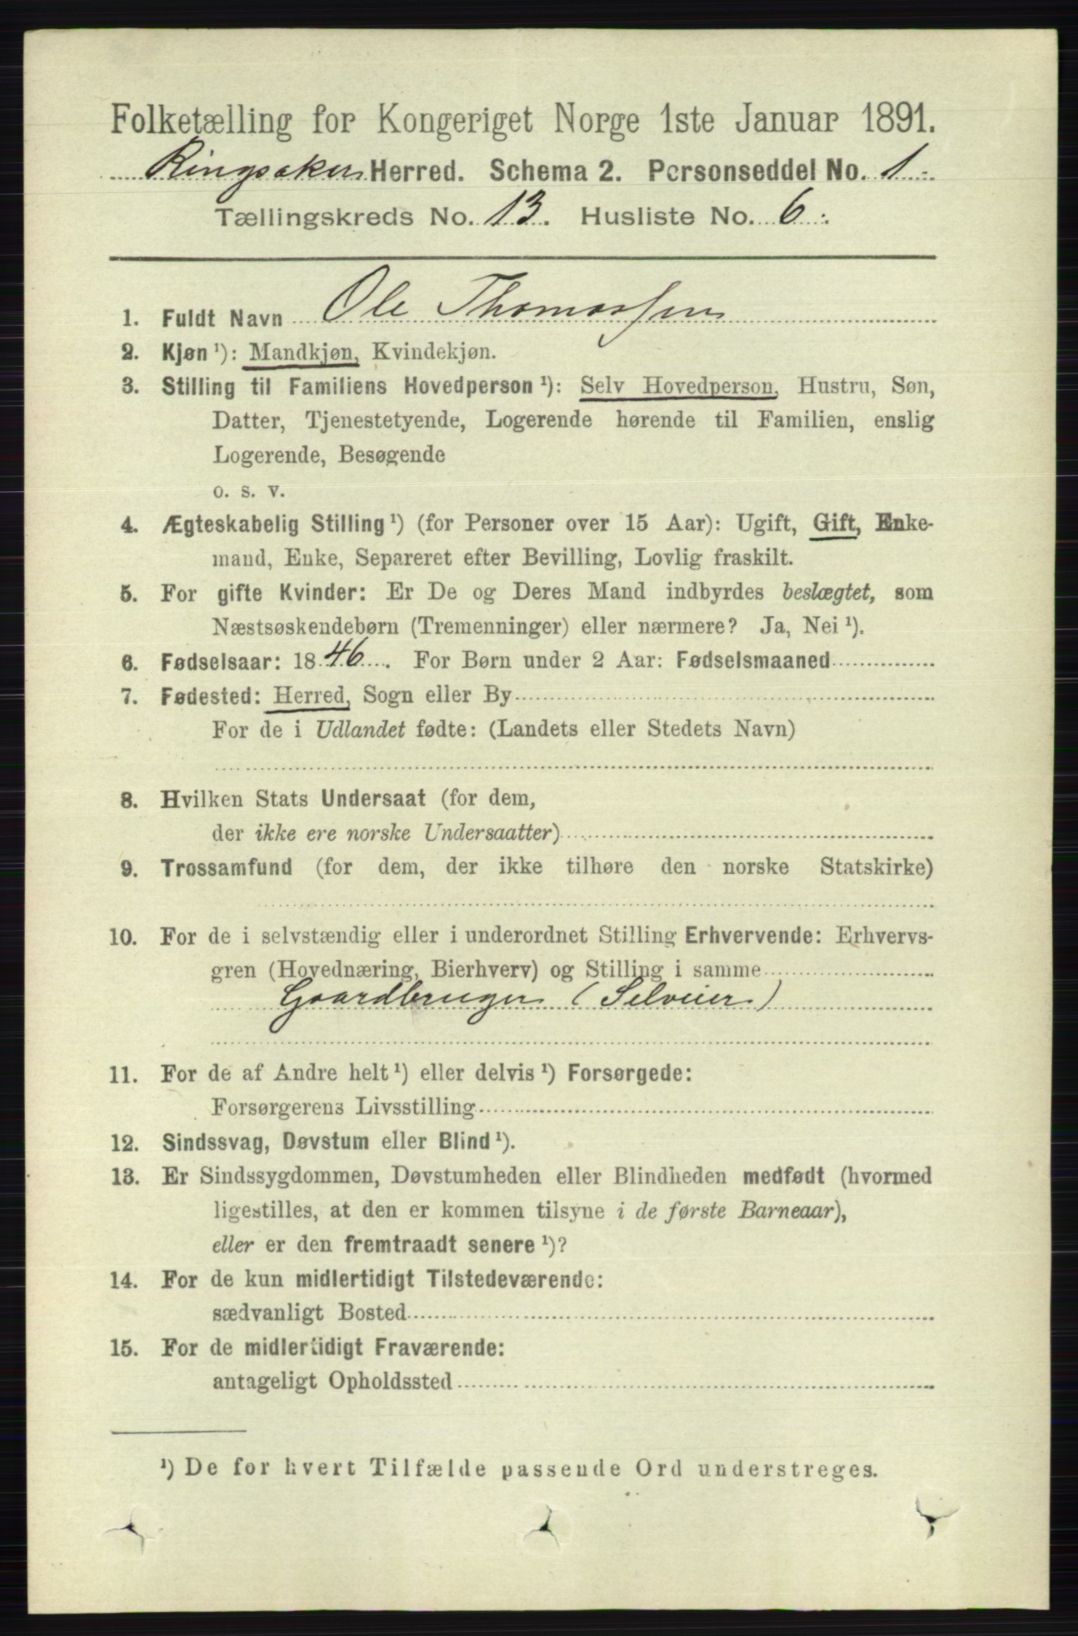 Folketælling for Kongeriget Norge 1ste Januar 1891.
Ringsaker Herred. Schema 2. Personseddel No. 1.
Tællingskreds No. 13. Husliste No. 6.
1. Fuldt Navn Ole Thomassen
2. Kjøn ¹): Mandkjøn, Kvindekjøn.
3. Stilling til Familiens Hovedperson ¹): Selv Hovedperson, Hustru, Søn,
Datter, Tjenestetyende, Logerende hørende til Familien, enslig
Logerende, Besøgende
o. s. v.
4. Ægteskabelig Stilling ¹) (for Personer over 15 Aar): Ugift, Gift, Enke-
mand, Enke, Separeret efter Bevilling, Lovlig fraskilt.
5. For gifte Kvinder: Er De og Deres Mand indbyrdes beslægtet, som
Næstsøskendebørn (Tremenninger) eller nærmere? Ja, Nei ¹).
6. Fødselsaar: 1846. For Børn under 2 Aar: Fødselsmaaned
7. Fødested: Herred, Sogn eller By
For de i Udlandet fødte: (Landets eller Stedets Navn)
8. Hvilken Stats Undersaat (for dem,
der ikke ere norske Undersaatter)
9. Trossamfund (for dem, der ikke tilhøre den norske Statskirke)
10. For de i selvstændig eller i underordnet Stilling Erhvervende: Erhvervs-
gren (Hovednæring, Bierhverv) og Stilling i samme
Gaardbruger (Selveier)
11. For de af Andre helt ¹) eller delvis ¹) Forsørgede:
Forsørgerens Livsstilling
12. Sindssvag, Døvstum eller Blind ¹).
13. Er Sindssygdommen, Døvstumheden eller Blindheden medfødt (hvormed
ligestilles, at den er kommen tilsyne i de første Barneaar),
eller er den fremtraadt senere ¹)?
14. For de kun midlertidigt Tilstedeværende:
sædvanligt Bosted
15. For de midlertidigt Fraværende:
antageligt Opholdssted
¹) De for hvert Tilfælde passende Ord understreges.